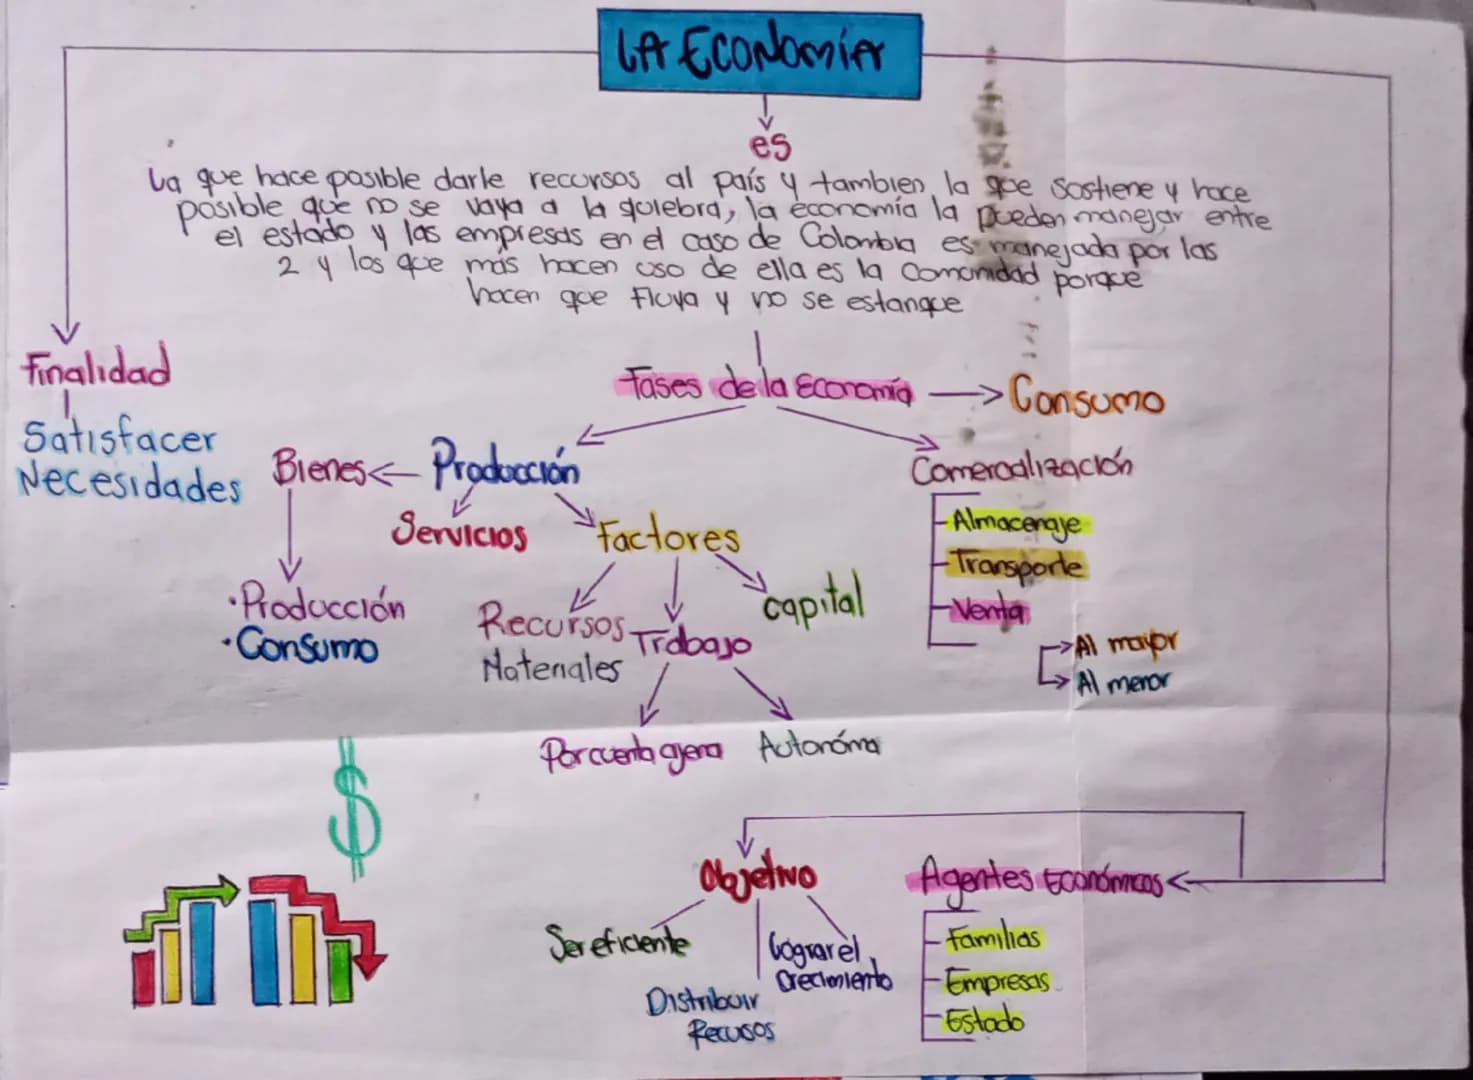 LA ECONOMÍA
es
La que hace posible darle recursos al país y tambien la que sostiene y hace
posible que no se vaya a la quiebra, la economía la pueden manejar entre
el estado y las empresas en el caso de Colombia es manejada por las
2 y los que más hacen uso de ella es la comunidad porque
hacen que fluya y no se estanque
Finalidad
Satisfacer
Necesidades
Fases de la Economía
Consumo
Bienes
Producción
Comercialización
Servicios
Factores
Almacenaje
Transporte
Venta
Al mayor
Al menor
•Producción
•Consumo
Recursos
Materiales
Trabajo
capital
Por cuenta ajena
Autonóma
$
Objetivo
Ser eficiente
Distribuir
Recusos
Lograr el
crecimiento
Agentes Económicos
Familias
Empresas
Estado